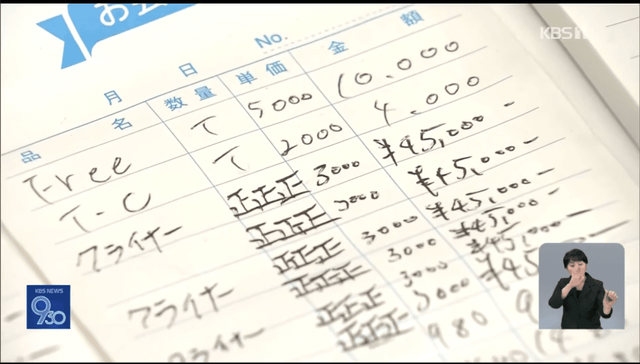 お会
KBS1
No.
月 日
品 名 数量 単価 金 額
T-ree T 5000 10.000
T-C T 2000 4.000
クライナー 正正正 3000 ¥45,000-
正正正 3000 ¥45,000-
クライナー 正正正 3000 ¥45,000-
正正正 3000 ¥45,000-
クライナー 正正正 3000 ¥45
正正正 980
KBS NEWS
930